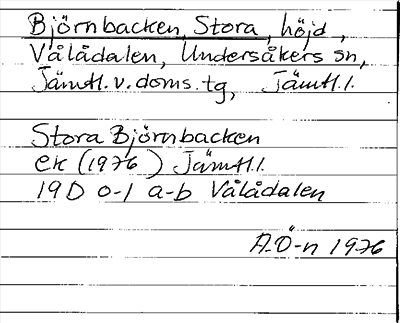 Björnbacken, Stora, höjd,
Vålådalen, Undersåkers sn,
Jämtl. v. doms. tg, Jämtl. l.
Stora Björnbacken
ek (1976) Jämtl. l.
19D 0-1 a-b Vålådalen
A.Ö-n 1976